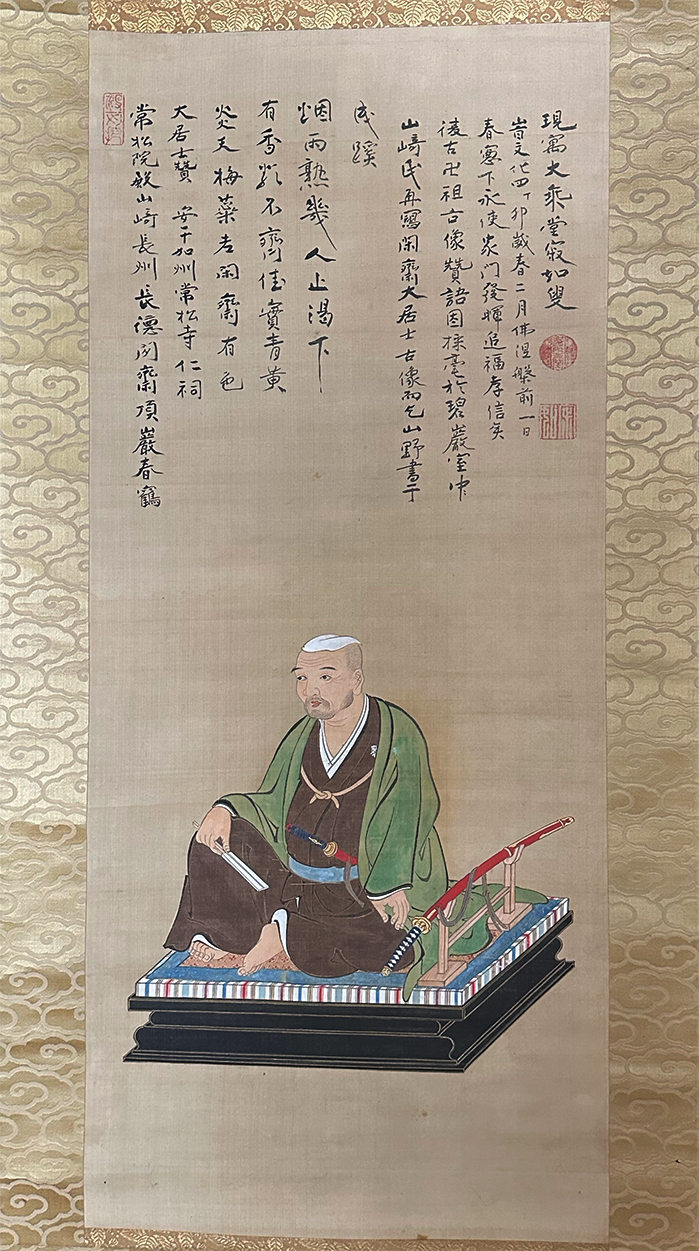 常松院殿山崎長州長德閑齋頂巖春龝
大居士贊 安于加州常松寺仁祠
炎天梅蘂老閑齋有色
有香類不齊佳實青黄
烟雨熟幾人止渇下
成蹊
山崎氏再寫閑齋大居士古像而乞山野書于
後古卍祖古像贊語因採毫於碧巖室中
春窓下永使家門發暉追福孝信矣
旹文化四丁卯歲春二月佛涅槃前一日
現寓大乘堂寂如叟